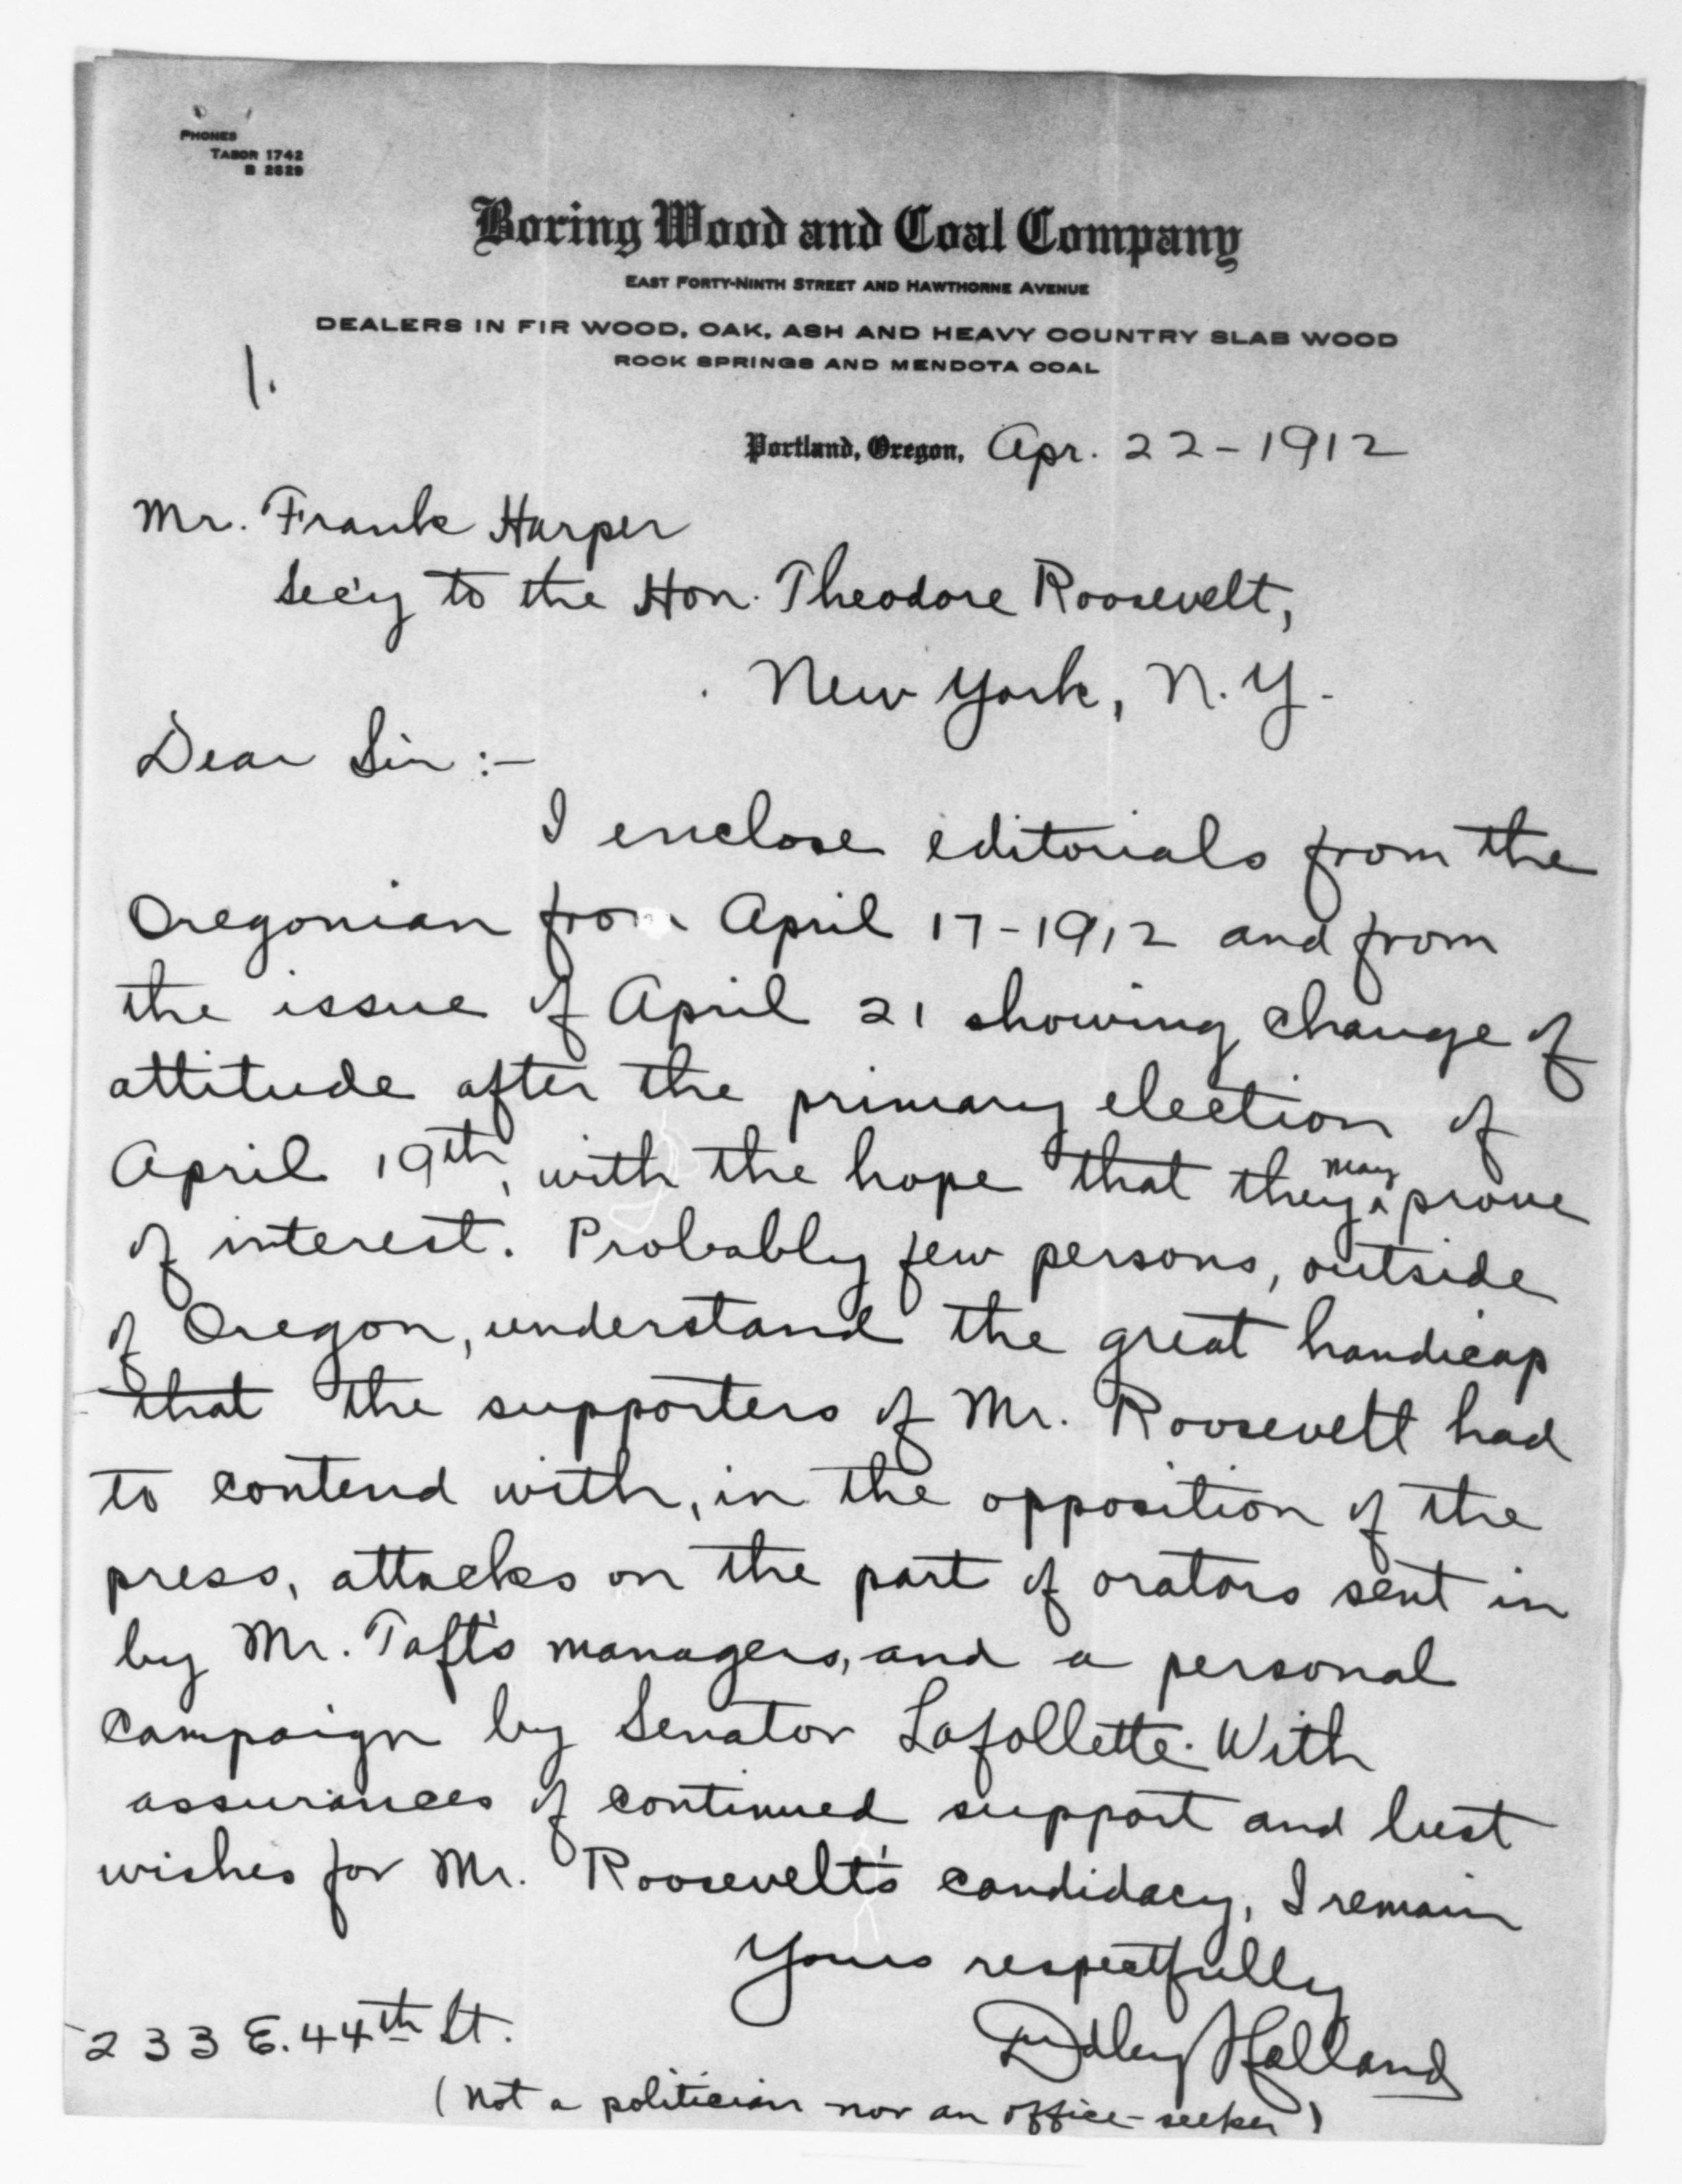 PHONES
TABOR 1742
B 2629
Boring Wood and Coal Company
EAST FORTY-NINTH STREET AND HAWTHORNE AVENUE
DEALERS IN FIR WOOD, OAK, ASH AND HEAVY COUNTRY SLAB WOOD
ROCK SPRINGS AND MENDOTA COAL
1.
Portland, Oregon, Apr. 22-1912
Mr. Frank Harper
Sec'y to the Hon. Theodore Roosevelt,
New York, N.Y.
Dear Sir :-
I enclose editorials from the
Oregonian from April 17-1912 and from
the issue of April 21 showing change of
attitude after the primary election of
April 19th, with the hope that they may prove
of interest. Probably few persons, outside
of Oregon, understand the great handicap
that the supporters of Mr. Roosevelt had
to contend with, in the opposition of the
press, attacks on the part of orators sent in
by Mr. Taft's managers, and a personal
campaign by Senator Lafollette. With
assurances of continued support and best
wishes for Mr. Roosevelt's candidacy, I remain
Yours respectfully
Dudley Holland
233 E. 44th St.
(Not a politician nor an office-seeker)